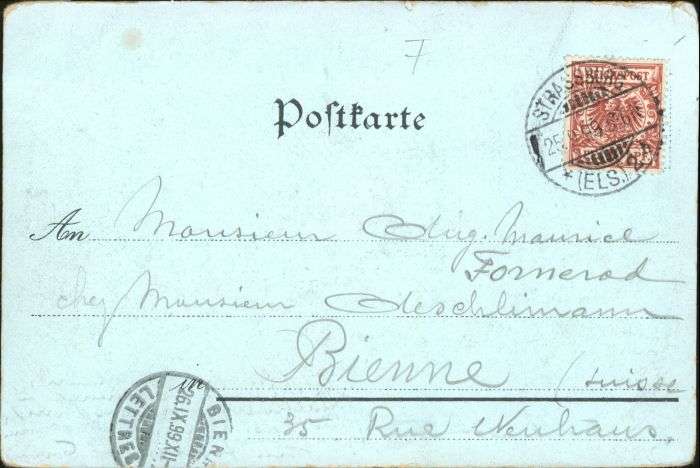 Postkarte
REICHSPOST
STRASSBURG
25. 99
(ELS.)
An Monsieur Aug. Maurice
Fornerod
chez Monsieur Aeschlimann
in Bienne (Suisse
35 Rue Neuhaus.
BIEN
26.IX.99.XII-
LETTRES